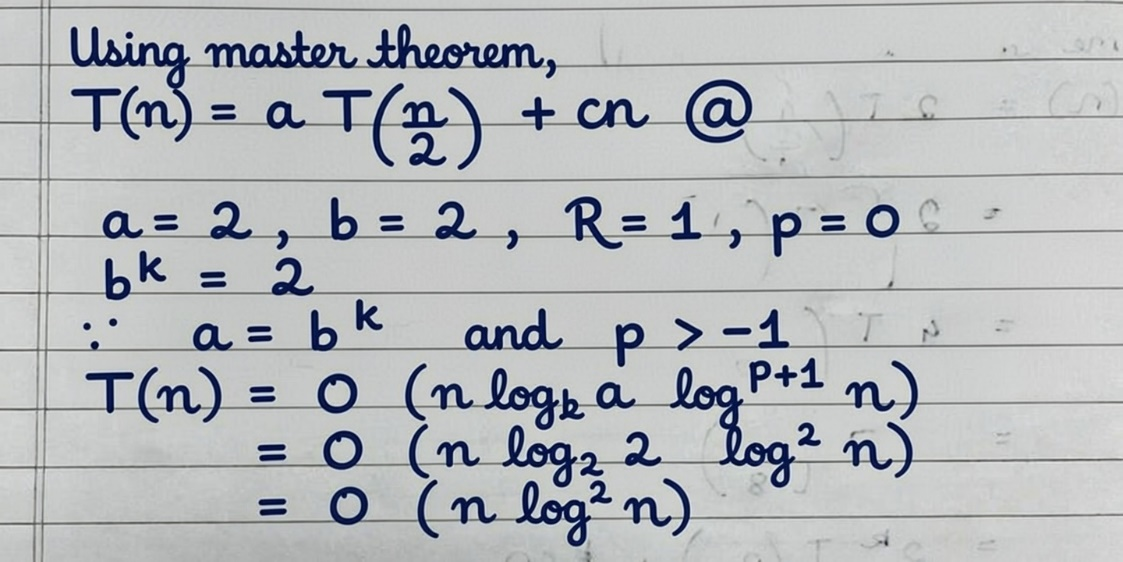 Using master theorem,
T(n) = a T(n/2) + cn @
a = 2 , b = 2 , R = 1 , p = 0
b^k = 2
∵ a = b^k and p > -1
T(n) = O (n log_b a log^{P+1} n)
= O (n log_2 2 log^2 n)
= O (n log^2 n)